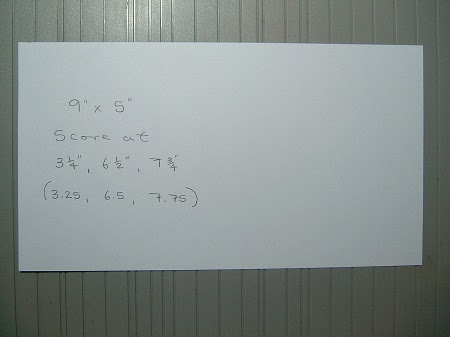 9" x 5"
Score at
3 1/4", 6 1/2", 7 3/4"
(3.25, 6.5, 7.75)